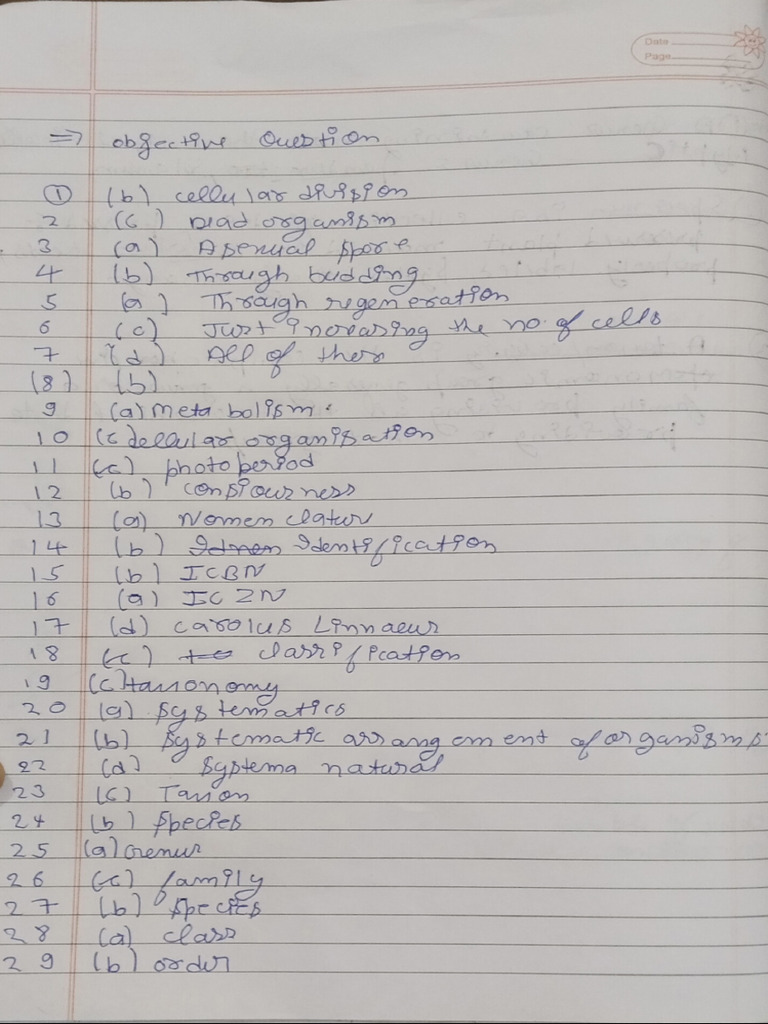 Date
Page
⇒ objective Question
① (b) cellular division
2 (c) Dead organism
3 (a) Asexual spore
4 (b) Through budding
5 (a) Through regeneration
6 (c) Just increasing the no. of cells
7 (d) All of them
(8) (b)
9 (a) Metabolism.
10 (c) Cellular organisation
11 (c) photoperiod
12 (b) consiourness
13 (a) Nomenclatur
14 (b) Identification
15 (b) ICBN
16 (a) ICZN
17 (d) Carolus Linnaeus
18 (c) classification
19 (c) taxonomy
20 (a) Systematics
21 (b) Systematic arrangement of organisms
22 (d) Systema natural
23 (c) Taxon
24 (b) Species
25 (a) Genus
26 (c) family
27 (b) Species
28 (a) class
29 (b) order